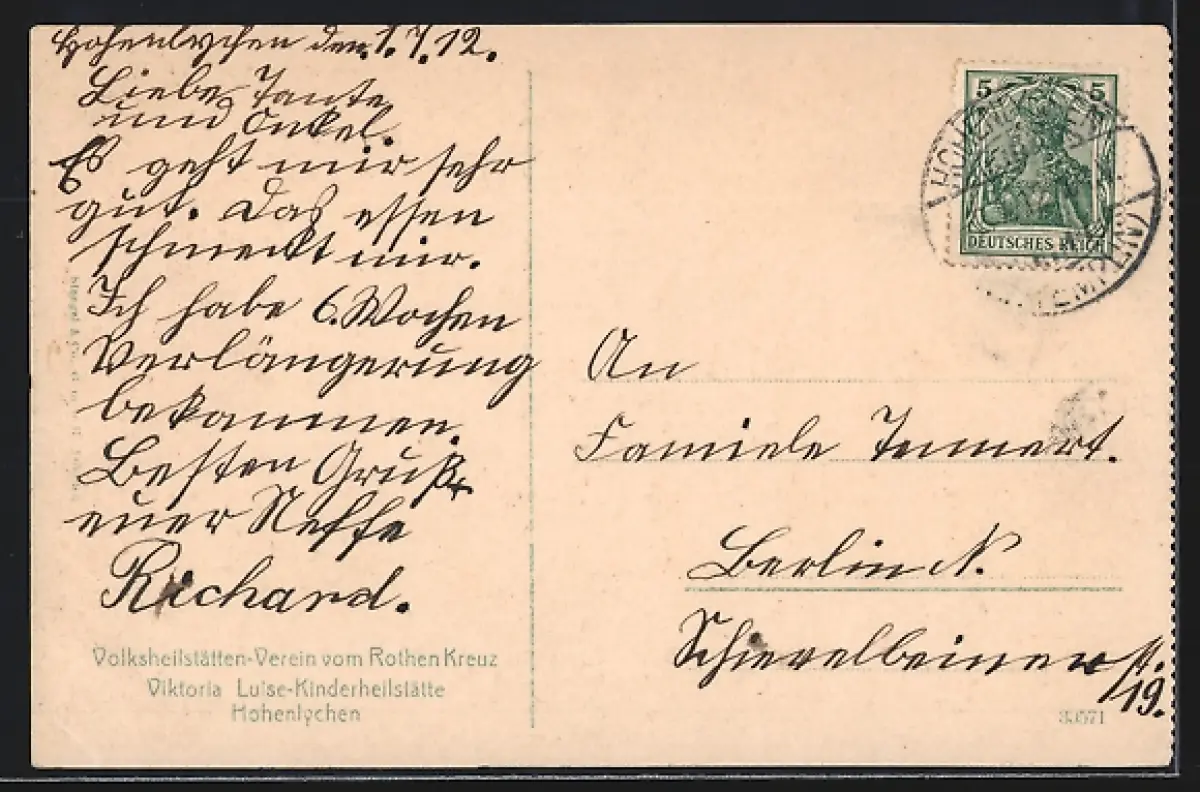 Hohenlychen den 1.7.12.
Liebe Tante
und Onkel.
Es geht mir sehr
gut. Das essen
schmeckt mir.
Ich habe 6. Wochen
Verlängerung
bekommen.
Besten Gruß
euer Neffe
Richard.
Volksheilstätten-Verein vom Rothen Kreuz
Viktoria Luise-Kinderheilstätte
Hohenlychen
5 5
DEUTSCHES REICH
HOHENLYCHEN
An
Familie Tennert.
Berlin N.
Schievelbeiner st.
19.